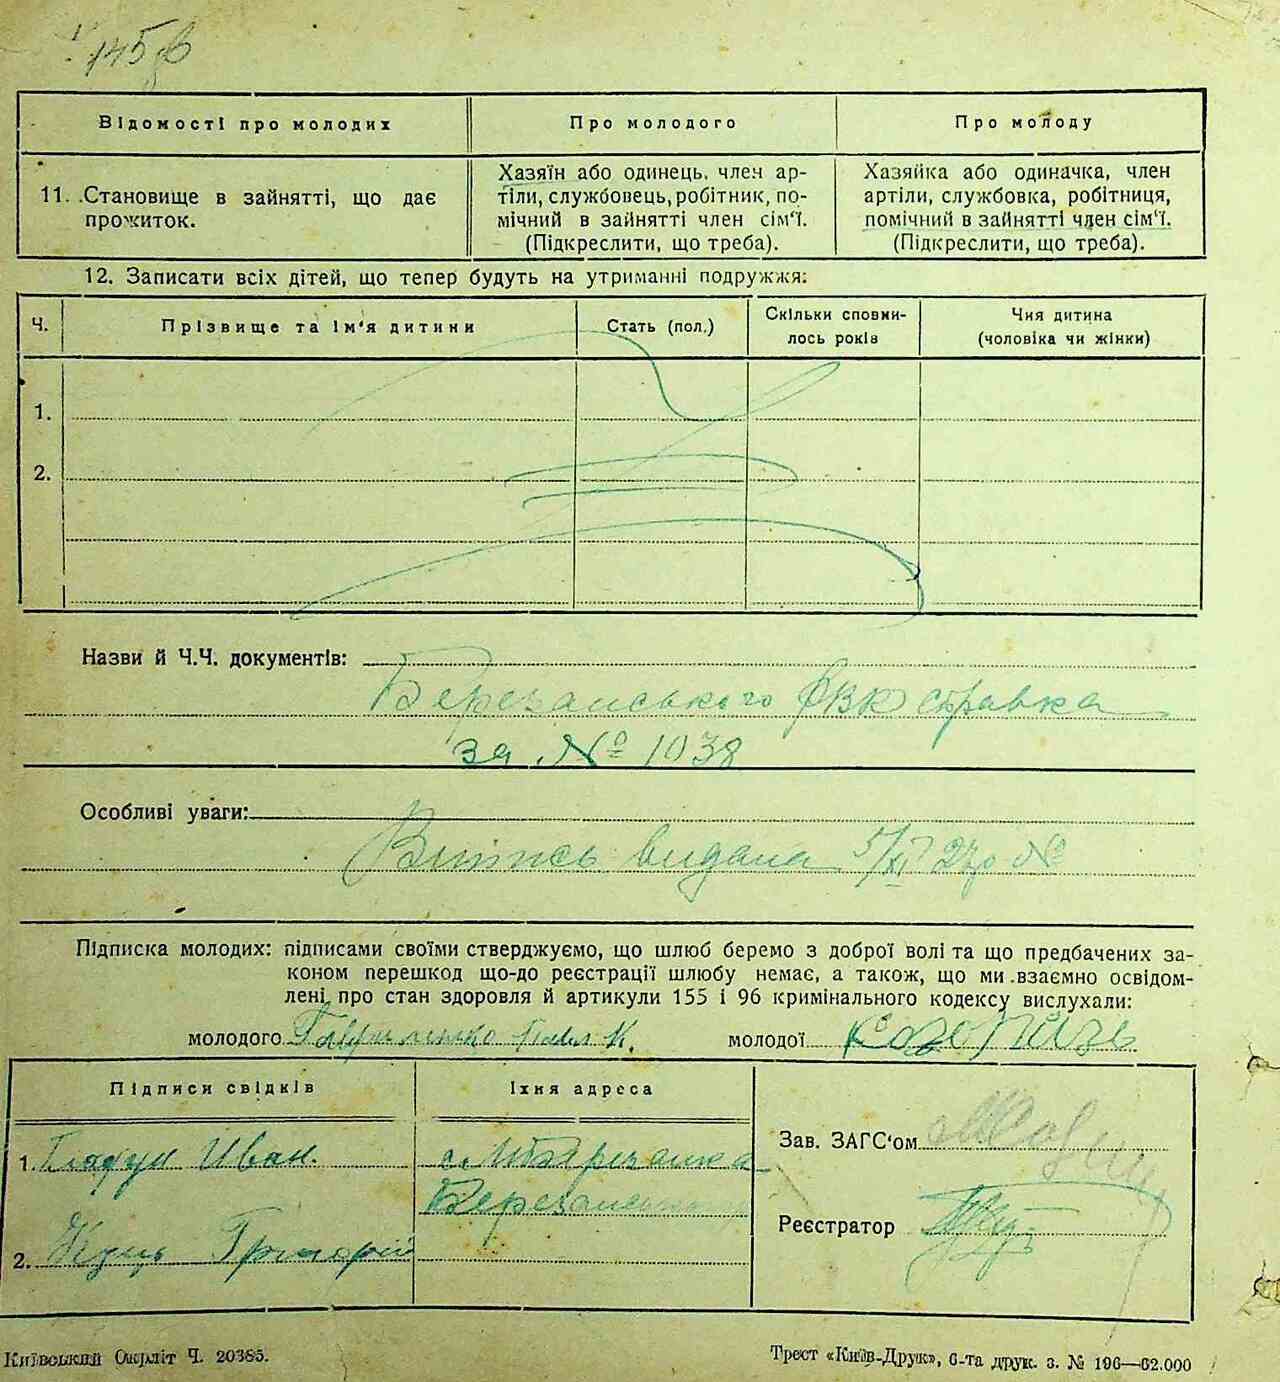 145
Відомості про молодих
Про молодого
Про молоду
11. Становище в зайнятті, що дає
прожиток.
Хазяїн або одинець, член ар-
тіли, службовець, робітник, по-
мічний в зайнятті член сім'ї.
(Підкреслити, що треба).
Хазяйка або одиначка, член
артіли, службовка, робітниця,
помічний в зайнятті член сім'ї.
(Підкреслити, що треба).
12. Записати всіх дітей, що тепер будуть на утриманні подружжя:
Ч.
Прізвище та ім'я дитини
Стать (пол.)
Скільки сповни-
лось років
Чия дитина
(чоловіка чи жінки)
1.
2.
Назви й Ч.Ч. документів:
Березанського РВК справка
за № 1038
Особливі уваги:
Випись видана 5/XI 27р №
Підписка молодих: підписами своїми стверджуємо, що шлюб беремо з доброї волі та що предбачених за-
коном перешкод що-до реєстрації шлюбу немає, а також, що ми взаємно освідом-
лені про стан здоровля й артикули 155 і 96 кримінального кодексу вислухали:
молодого Гавриленко Павл К. молодої
Підписи свідків
Їхня адреса
1. Гладун Иван.
с. Березанка
Березанськ
2. Куць Григорій
Зав. ЗАГС'ом
Реєстратор
Київський Окрліт Ч. 20385.
Трест «Київ-Друк», 6-та друк. з. № 196—62.000